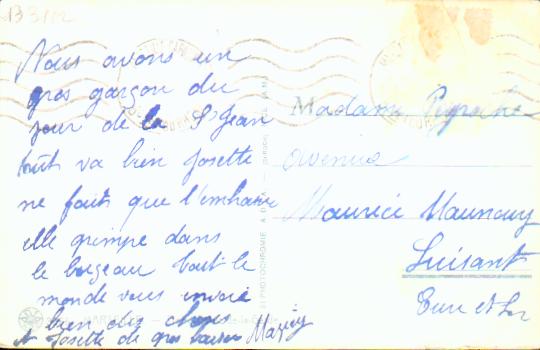 13312
Nous avons un
gros garçon du
jour de la St Jean
tout va bien Josette
ne fait que l'embrasser
elle grimpe dans
le berceau tout le
monde vous envoie
bien des choses
et Josette de gros baisers
Madame
avenue
Maurice Maunoury
Luisant
Eure et Loir